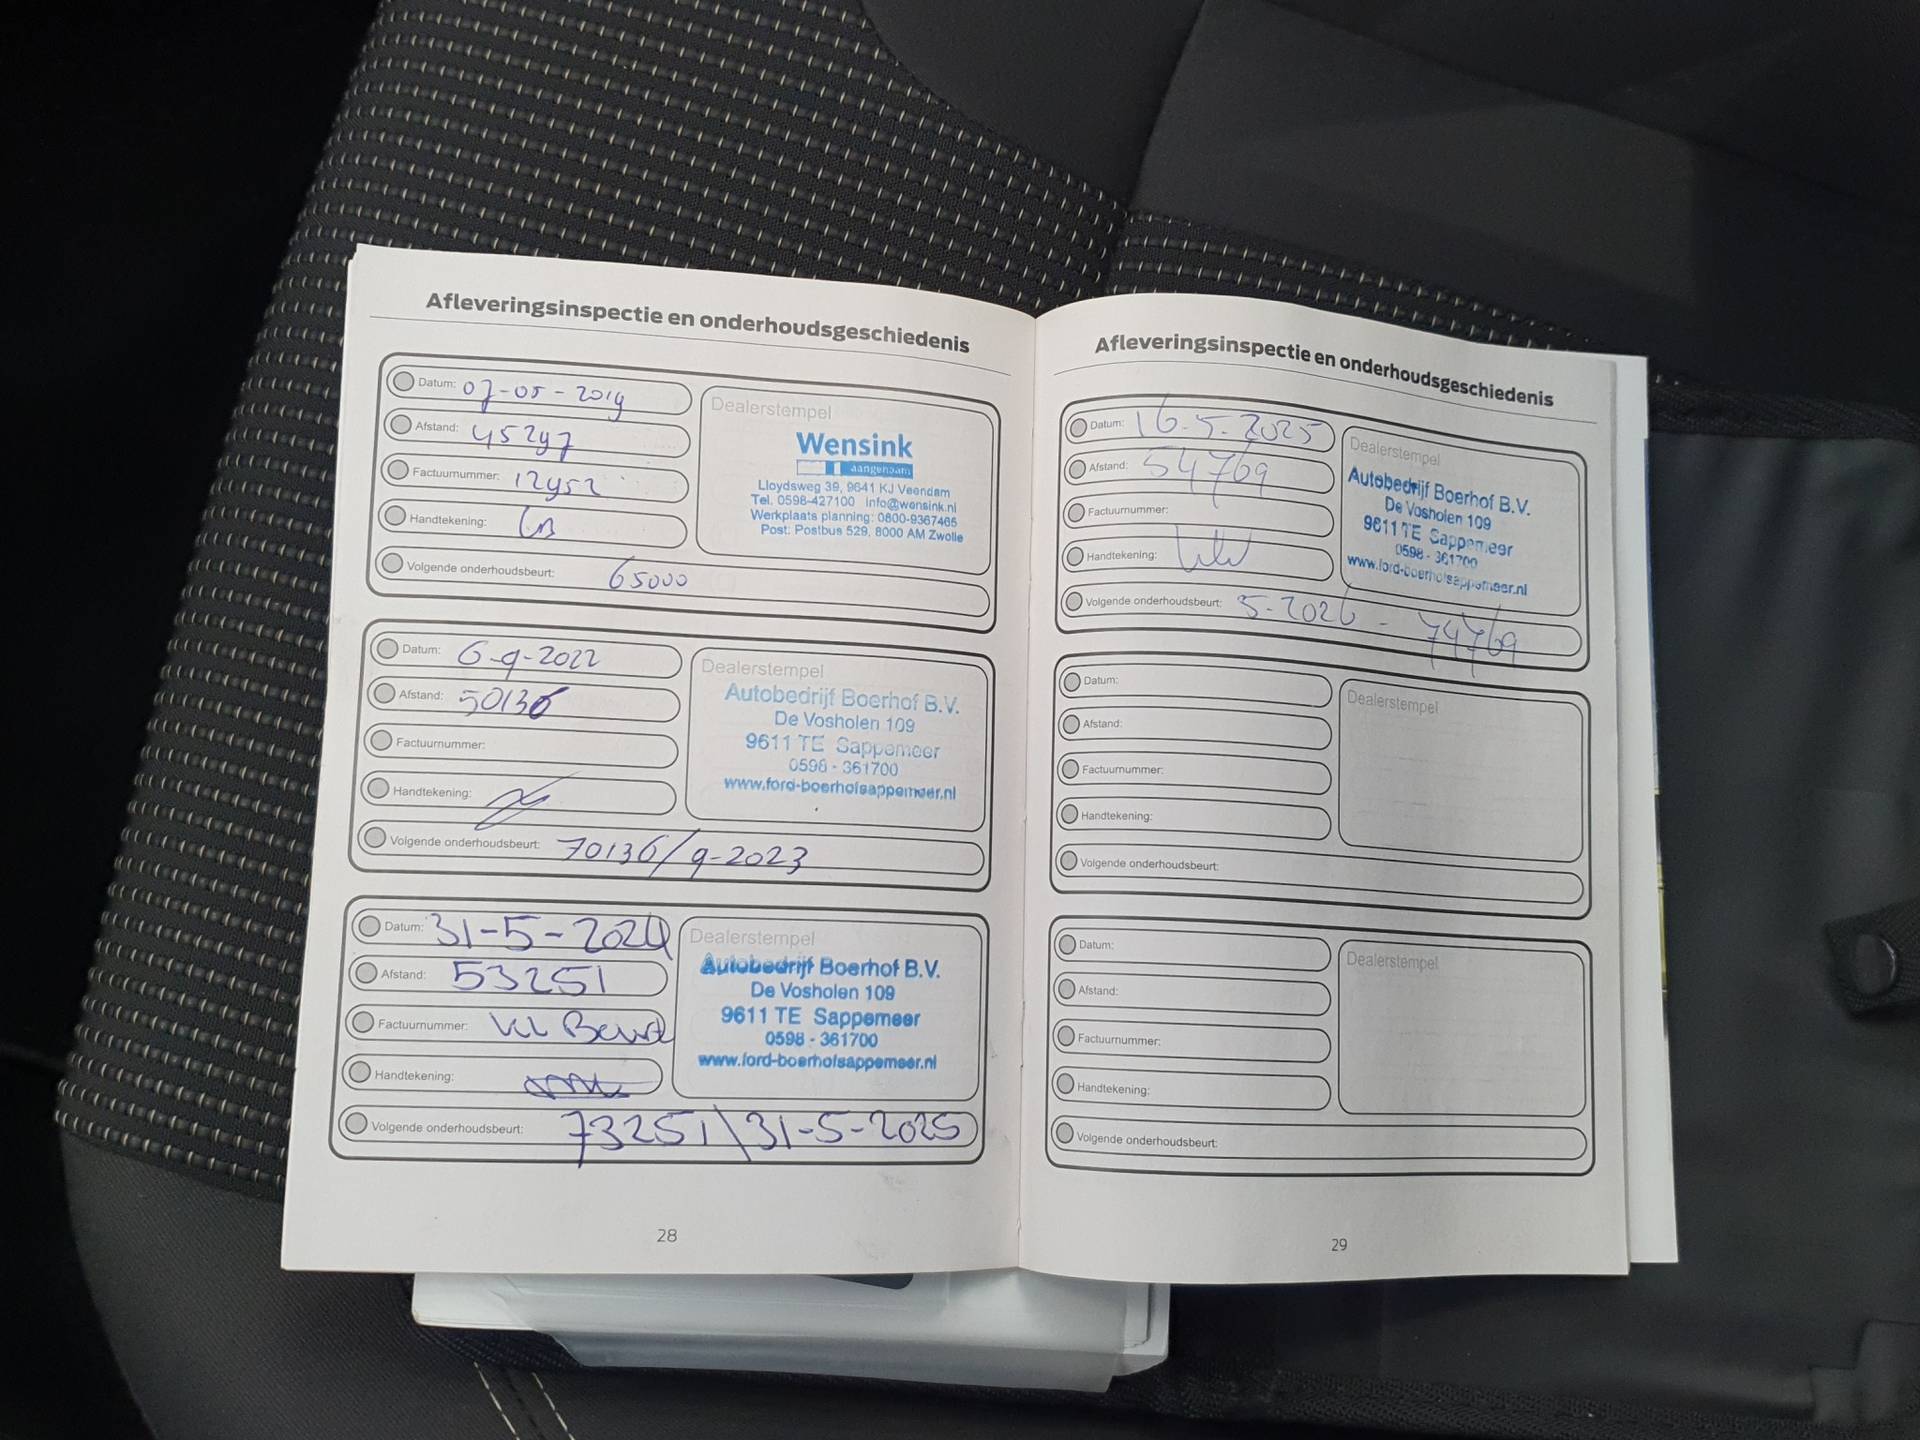 Afleveringsinspectie en onderhoudsgeschiedenis
Datum: 07-05-2019
Afstand: 45297
Factuurnummer: 12952
Handtekening:
Volgende onderhoudsbeurt: 65000
Dealerstempel
Wensink
aangenaam
Lloydsweg 39, 9641 KJ Veendam
Tel. 0598-427100 info@wensink.nl
Werkplaats planning: 0800-9367465
Post: Postbus 529, 8000 AM Zwolle
Datum: 6-9-2022
Afstand: 50136
Factuurnummer:
Handtekening:
Volgende onderhoudsbeurt: 70136/9-2023
Dealerstempel
Autobedrijf Boerhof B.V.
De Vosholen 109
9611 TE Sappemeer
0598 - 361700
www.ford-boerhofsappemeer.nl
Datum: 31-5-2024
Afstand: 53251
Factuurnummer: Kl Beurt
Handtekening:
Volgende onderhoudsbeurt: 73251\31-5-2025
Dealerstempel
Autobedrijf Boerhof B.V.
De Vosholen 109
9611 TE Sappemeer
0598 - 361700
www.ford-boerhofsappemeer.nl
28
Afleveringsinspectie en onderhoudsgeschiedenis
Datum: 16-5-2025
Afstand: 54769
Factuurnummer:
Handtekening:
Volgende onderhoudsbeurt: 5-2026 - 74769
Dealerstempel
Autobedrijf Boerhof B.V.
De Vosholen 109
9611 TE Sappemeer
0598 - 361700
www.ford-boerhofsappemeer.nl
Datum:
Afstand:
Factuurnummer:
Handtekening:
Volgende onderhoudsbeurt:
Dealerstempel
Datum:
Afstand:
Factuurnummer:
Handtekening:
Volgende onderhoudsbeurt:
Dealerstempel
29